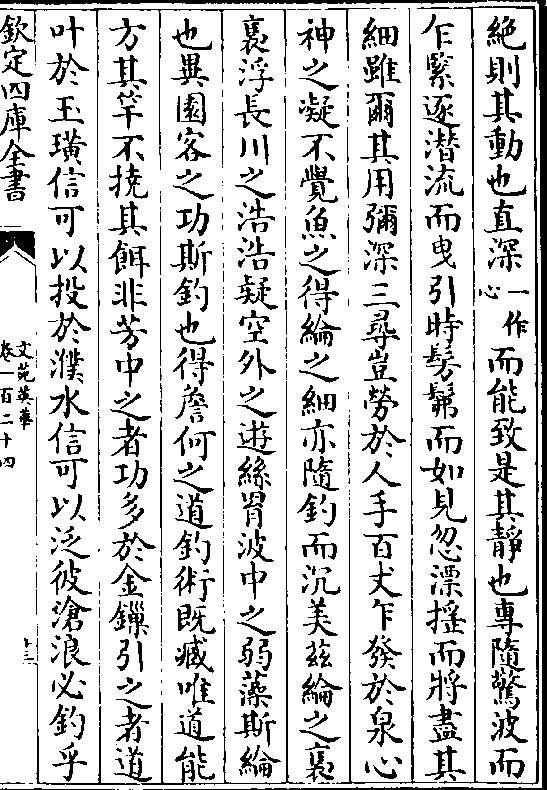 絶則其動也直深一作心而能致是其靜也專隨驚波而
乍緊逐潛流而曳引時髣髴而如見忽漂揺而將盡其
細雖爾其用彌深三尋豈勞於人手百丈乍發於泉心
神之凝不覺魚之得綸之細亦隨釣而沉美兹綸之裊
裊浮長川之浩浩疑空外之遊絲罥波中之弱藻斯綸
也異園客之功斯釣也得詹何之道釣術既臧唯道能
方其竿不撓其餌非芳中之者功多於金鏁引之者道
叶於玉璜信可以投於濮水信可以泛彼滄浪必釣乎
欽定四庫全書
文苑英華
卷一百二十四
十三